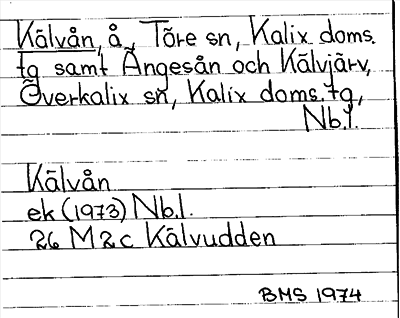 Kälvån, å, Töre sn, Kalix doms.
tg samt Ängesån och Kälvjärv,
Överkalix sn, Kalix doms.tg,
Nb.l.
Kälvån
ek (1973) Nb.l.
26 M 2 c Kälvudden
BMS 1974